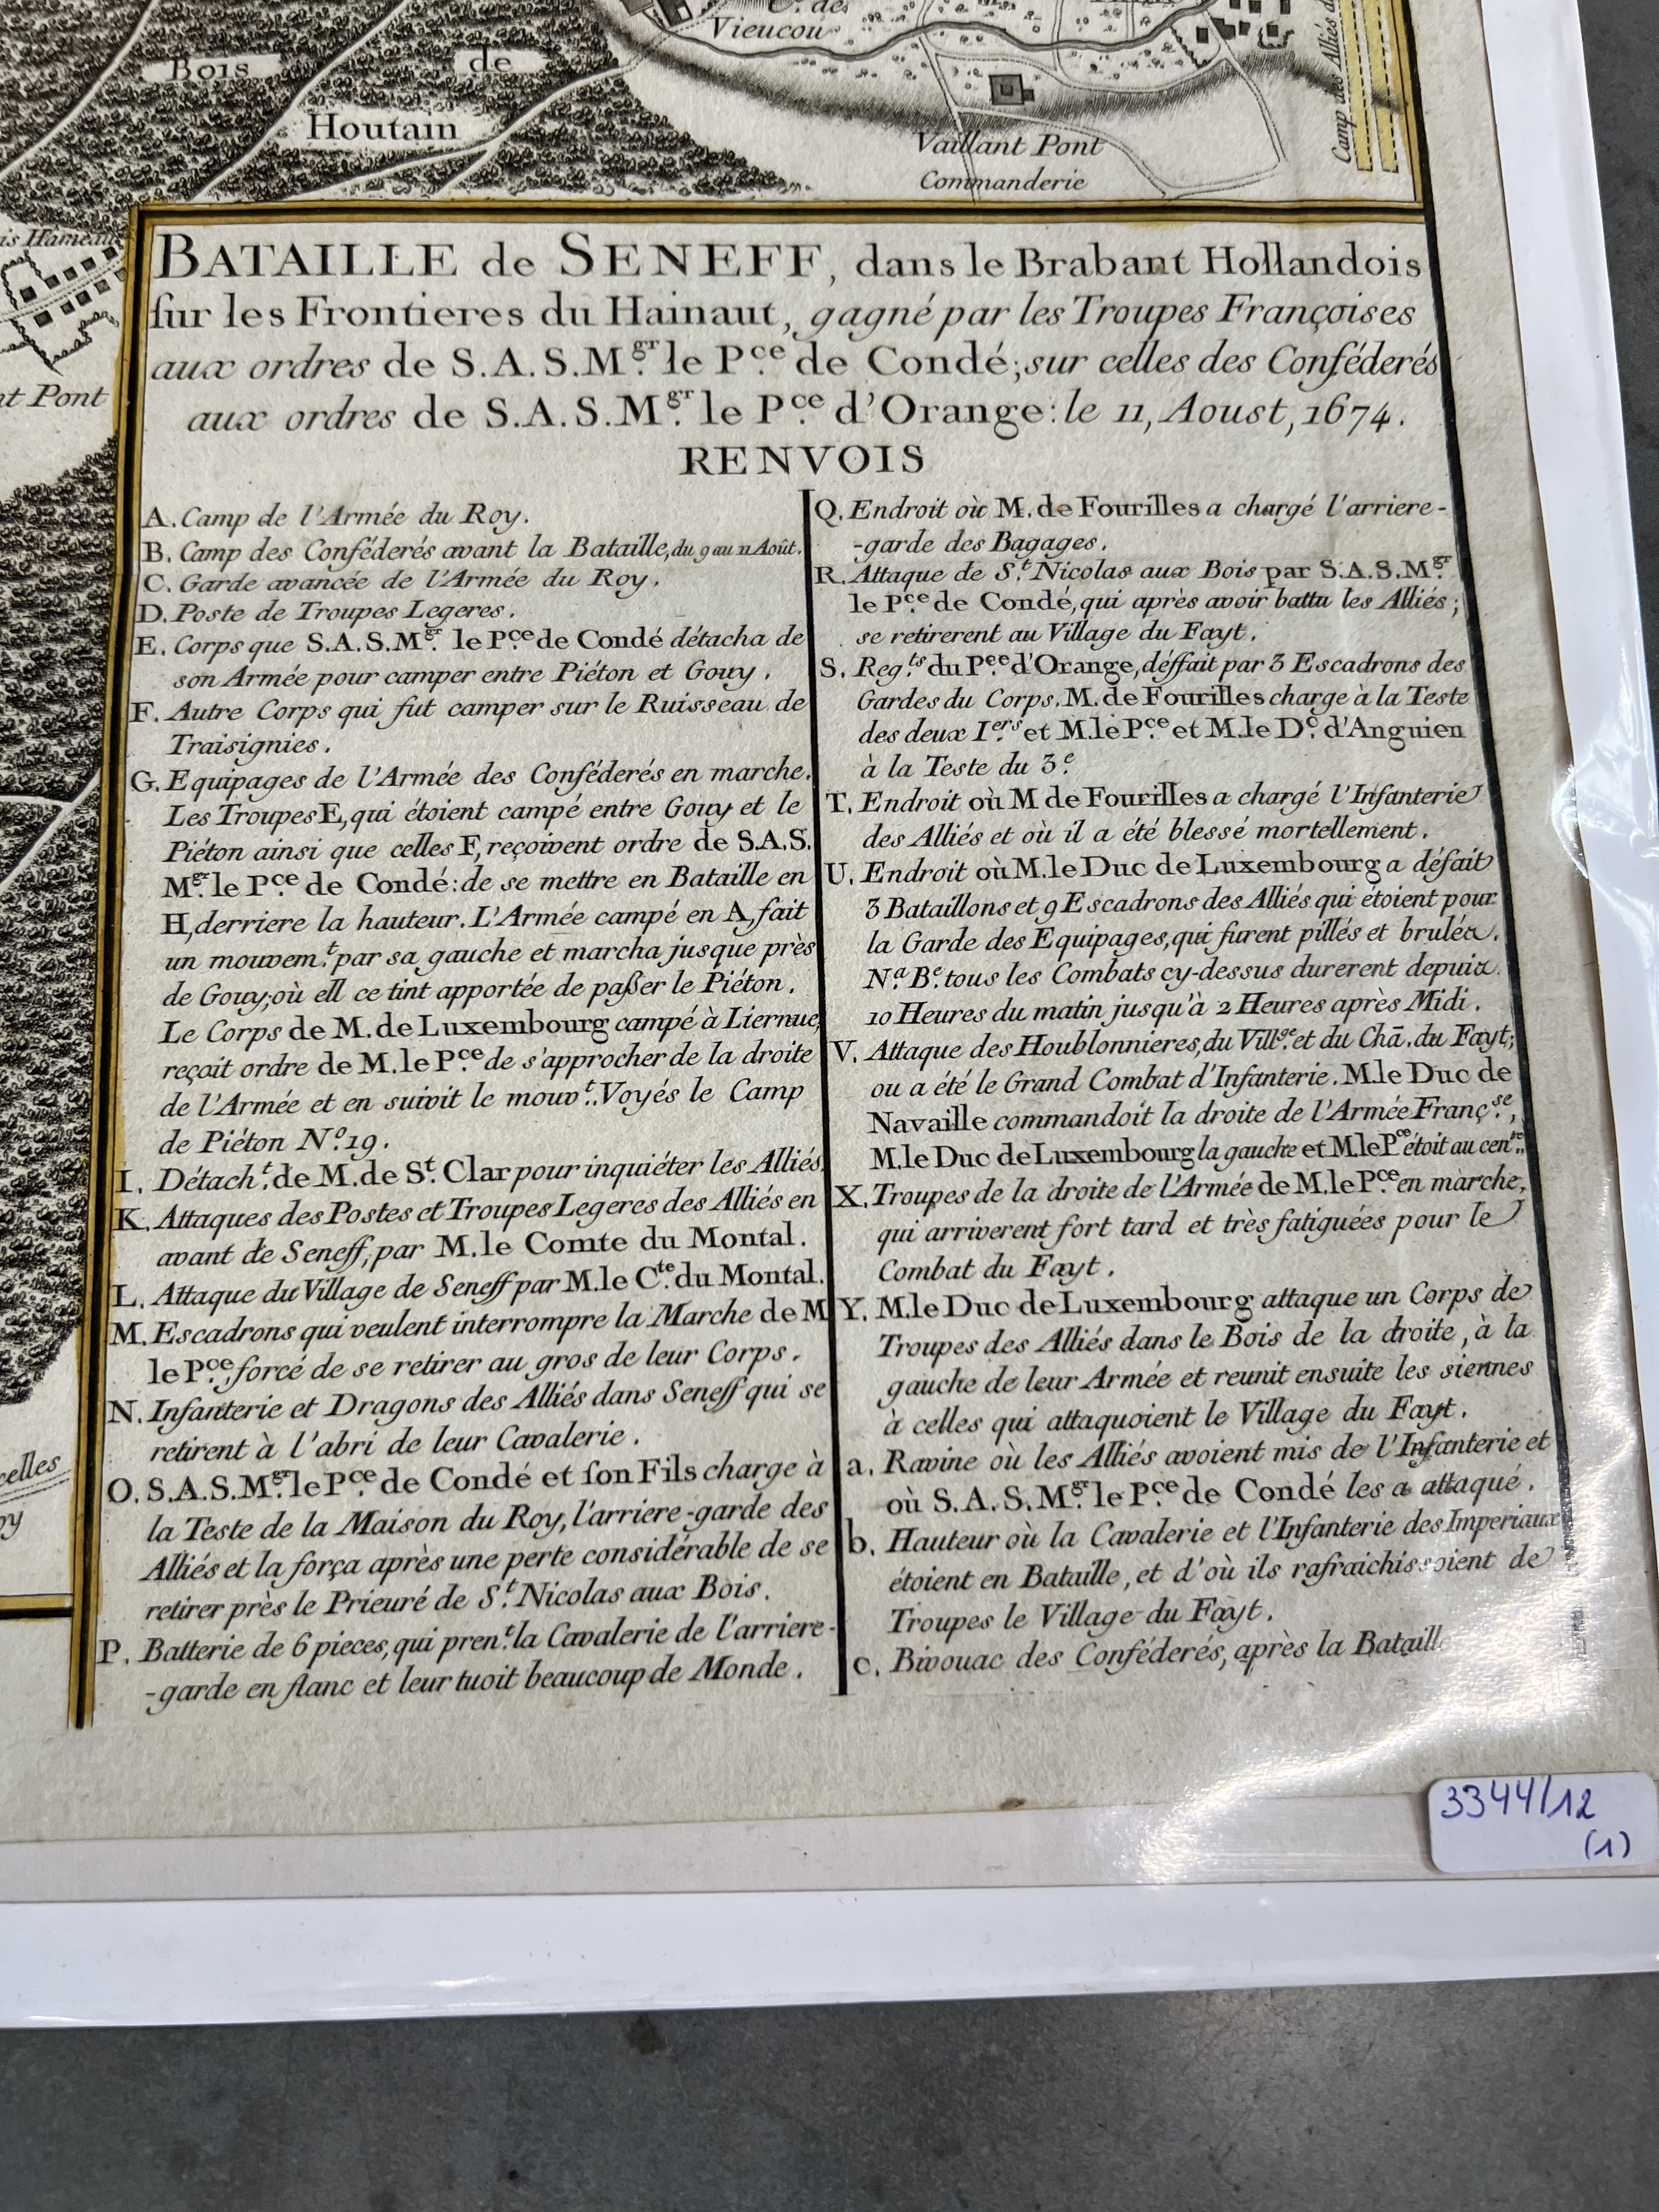 C. des
Vieucou
Bois de
Houtain
Vaillant Pont
Commanderie
Camp des Alliés d
is Hameau
nt Pont
celles
oy
BATAILLE de SENEFF, dans le Brabant Hollandois
sur les Frontieres du Hainaut, gagné par les Troupes Françoises
aux ordres de S.A.S.Mgr. le Pce. de Condé; sur celles des Conféderés
aux ordres de S.A.S.Mgr. le Pce. d'Orange: le 11, Aoust, 1674.
RENVOIS
A. Camp de l'Armée du Roy.
B. Camp des Conféderés avant la Bataille, du 9 au 11 Août.
C. Garde avancée de l'Armée du Roy.
D. Poste de Troupes Legeres.
E. Corps que S.A.S.Mgr. le Pce. de Condé détacha de
son Armée pour camper entre Piéton et Gouy.
F. Autre Corps qui fut camper sur le Ruisseau de
Traisignies.
G. Equipages de l'Armée des Conféderés en marche.
Les Troupes E, qui étoient campé entre Gouy et le
Piéton ainsi que celles F, reçoivent ordre de S.A.S.
Mgr. le Pce. de Condé: de se mettre en Bataille en
H, derriere la hauteur. L'Armée campé en A, fait
un mouvem.t par sa gauche et marcha jusque près
de Gouy; où ell ce tint apportée de paßer le Piéton.
Le Corps de M. de Luxembourg campé à Liernue,
reçoit ordre de M. le Pce. de s'approcher de la droite
de l'Armée et en suivit le mouvt.. Voyés le Camp
de Piéton No. 19.
I. Détacht. de M. de St. Clar pour inquiéter les Alliés,
K. Attaques des Postes et Troupes Legeres des Alliés en
avant de Seneff, par M. le Comte du Montal.
L. Attaque du Village de Seneff par M. le Cte. du Montal.
M. Escadrons qui veulent interrompre la Marche de M
le Pce. forcé de se retirer au gros de leur Corps.
N. Infanterie et Dragons des Alliés dans Seneff qui se
retirent à l'abri de leur Cavalerie.
O. S.A.S.Mgr. le Pce. de Condé et son Fils charge à
la Teste de la Maison du Roy, l'arriere-garde des
Alliés et la força après une perte considérable de se
retirer près le Prieuré de St. Nicolas aux Bois.
P. Batterie de 6 pieces, qui prent. la Cavalerie de l'arriere-
-garde en flanc et leur tuoit beaucoup de Monde.
Q. Endroit où M. de Fourilles a chargé l'arriere-
-garde des Bagages.
R. Attaque de St. Nicolas aux Bois par S.A.S.Mgr.
le Pce. de Condé, qui après avoir battu les Alliés;
se retirerent au Village du Fayt.
S. Regts. du Pce. d'Orange, déffait par 3 Escadrons des
Gardes du Corps. M. de Fourilles charge à la Teste
des deux Iers. et M. le Pce. et M. le Dc. d'Anguien
à la Teste du 3e.
T. Endroit où M de Fourilles a chargé l'Infanterie
des Alliés et où il a été blessé mortellement.
U. Endroit où M. le Duc de Luxembourg a défait
3 Bataillons et 9 Escadrons des Alliés qui étoient pour
la Garde des Equipages, qui furent pillés et brulés.
Na. Be. tous les Combats cy-dessus durerent depuis
10 Heures du matin jusqu'à 2 Heures après Midi.
V. Attaque des Houblonnieres, du Villge. et du Chā. du Fayt;
ou a été le Grand Combat d'Infanterie. M. le Duc de
Navaille commandoit la droite de l'Armée Françse.,
M. le Duc de Luxembourg la gauche et M. le Pce étoit au centre..
X. Troupes de la droite de l'Armée de M. le Pce. en marche,
qui arriverent fort tard et très fatiguées pour le
Combat du Fayt.
Y. M. le Duc de Luxembourg attaque un Corps de
Troupes des Alliés dans le Bois de la droite, à la
gauche de leur Armée et reunit ensuite les siennes
à celles qui attaquoient le Village du Fayt.
a. Ravine où les Alliés avoient mis de l'Infanterie et
où S.A.S.Mgr. le Pce. de Condé les a attaqué.
b. Hauteur où la Cavalerie et l'Infanterie des Imperiaux
étoient en Bataille, et d'où ils rafraichissoient de
Troupes le Village du Fayt.
c. Bivouac des Conféderés, après la Bataille
3344/12
(1)